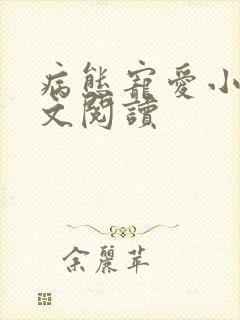 病態寵愛小
文閱讀
余麗苹